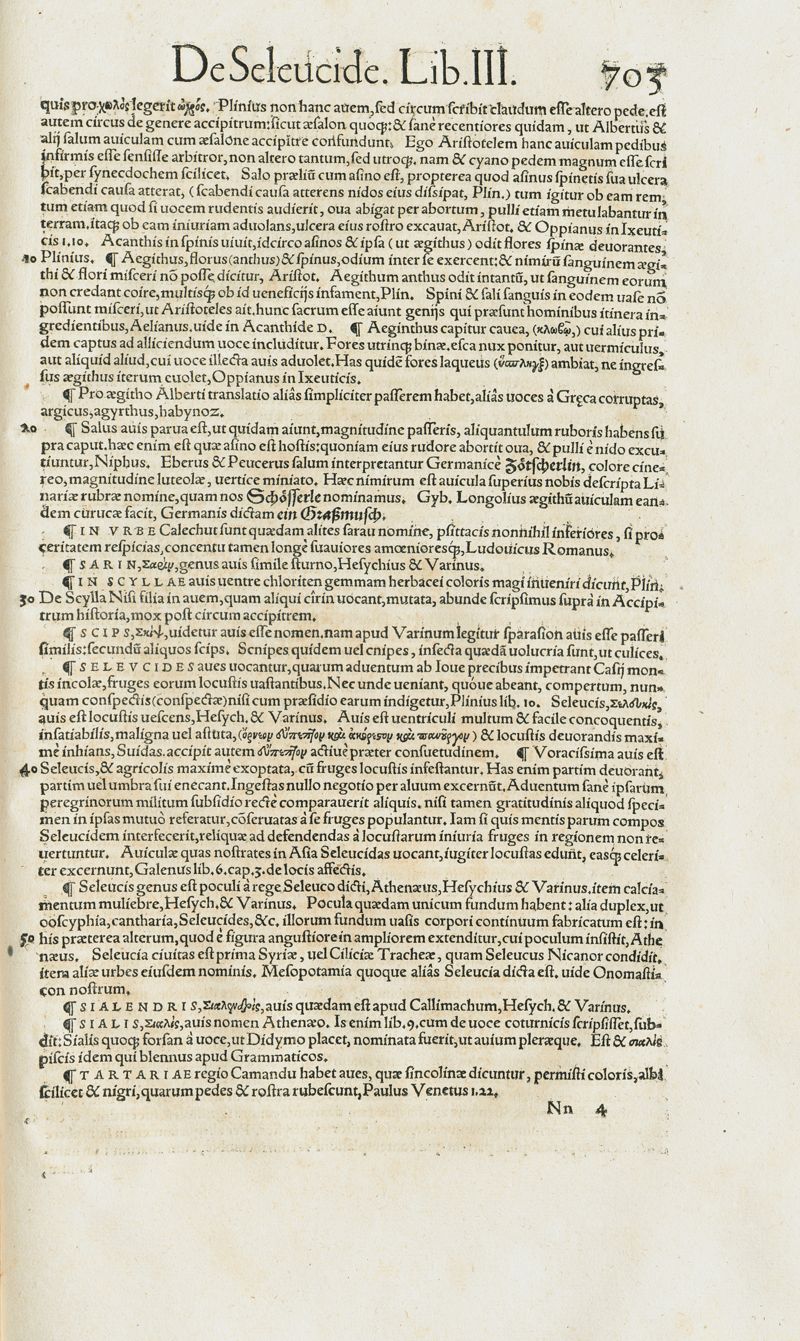 De Seleucide. Lib. III. 703
quis pro χωλὸς legerit ὠχρός. Plinius non hanc auem, sed circum scribit claudum esse altero pede. est
autem circus de genere accipitrum: sicut æsalon quoq;: & sanè recentiores quidam, ut Albertus &
alij salum auiculam cum æsalone accipitre confundunt. Ego Aristotelem hanc auiculam pedibus
infirmis esse sensisse arbitror, non altero tantum, sed utroq;. nam & cyano pedem magnum esse scri
bit, per synecdochem scilicet. Salo præliũ cum asino est, propterea quod asinus spinetis sua ulcera
scabendi causa atterat, (scabendi causa atterens nidos eius dissipat, Plin.) tum igitur ob eam rem,
tum etiam quod si uocem rudentis audierit, oua abigat per abortum, pulli etiam metu labantur in
terram. itaq; ob eam iniuriam aduolans, ulcera eius rostro excauat, Aristot. & Oppianus in Ixeuti-
cis 1.10. Acanthis in spinis uiuit, idcirco asinos & ipsa (ut ægithus) odit flores spinæ deuorantes,
40 Plinius. ¶ Aegithus, florus (anthus) & spinus, odium inter se exercent: & nimirũ sanguinem ægi-
thi & flori misceri nõ posse dicitur, Aristot. Aegithum anthus odit intantũ, ut sanguinem eorum
non credant coire, multisq; ob id ueneficijs infament, Plin. Spini & sali sanguis in eodem uase nõ
possunt misceri, ut Aristoteles ait. hunc sacrum esse aiunt genijs qui præsunt hominibus itinera in-
gredientibus, Aelianus. uide in Acanthide D. ¶ Aeginthus capitur cauea, (κλωβῷ,) cui alius pri-
dem captus ad alliciendum uoce includitur. Fores utrinq; binæ. esca nux ponitur, aut uermiculus,
aut aliquid aliud, cui uoce illecta auis aduolet. Has quidẽ fores laqueus ambiat, ne ingres-
sus ægithus iterum euolet, Oppianus in Ixeuticis.
¶ Pro ægitho Alberti translatio aliâs simpliciter passerem habet, aliâs uoces à Gręca corruptas,
argicus, agyrthus, habynoz.
20 ¶ Salus auis parua est, ut quidam aiunt, magnitudine passeris, aliquantulum ruboris habens su
pra caput. hæc enim est quæ asino est hostis: quoniam eius rudore abortit oua, & pulli è nido excu-
tiuntur, Niphus. Eberus & Peucerus salum interpretantur Germanicè Zötscherlin, colore cine-
reo, magnitudine luteolæ, uertice miniato. Hæc nimirum est auicula superius nobis descripta Li-
nariæ rubræ nomine, quam nos Schösserle nominamus. Gyb. Longolius ægithũ auiculam ean-
dem curucæ facit, Germanis dictam ein Graßmusch.
¶ IN VRBE Calechut sunt quædam alites sarau nomine, psittacis nonnihil inferiores, si pro-
ceritatem respicias, concentu tamen longè suauiores amœnioresq;, Ludouicus Romanus.
¶ SARIN, Σαρὶν, genus auis simile sturno, Hesychius & Varinus.
¶ IN SCYLLAE auis uentre chloriten gemmam herbacei coloris magi inueniri dicunt, Plin.
30 De Scylla Nisi filia in auem, quam aliqui cirin uocant, mutata, abunde scripsimus suprà in Accipi-
trum historia, mox post circum accipitrem.
¶ SCIPS, Σκὶψ, uidetur auis esse nomen. nam apud Varinum legitur sparasion auis esse passeri
similis: secundũ aliquos scips. Scnipes quidem uel cnipes, insecta quædã uolucria sunt, ut culices.
¶ SELEVCIDES aues uocantur, quarum aduentum ab Ioue precibus impetrant Casij mon-
tis incolæ, fruges eorum locustis uastantibus. Nec unde ueniant, quóue abeant, compertum, nun-
quam conspectis (conspectæ) nisi cum præsidio earum indigetur, Plinius lib. 10. Seleucis, Σελευκὶς,
auis est locustis uescens, Hesych. & Varinus. Auis est uentriculi multum & facile concoquentis,
insatiabilis, maligna uel astuta, (ὄρνεον εὔπεπτον καὶ ἀκόρεστον καὶ πανοῦργον) & locustis deuorandis maxi-
mè inhians, Suidas. accipit autem εὔπεπτον actiuè præter consuetudinem. ¶ Voracissima auis est
40 Seleucis, & agricolis maximè exoptata, cũ fruges locustis infestantur. Has enim partim deuorant,
partim uel umbra sui enecant. Ingestas nullo negotio per aluum excernũt. Aduentum sanè ipsarum
peregrinorum militum subsidio rectè comparauerit aliquis. nisi tamen gratitudinis aliquod speci-
men in ipsas mutuò referatur, cõseruatas à se fruges populantur. Iam si quis mentis parum compos
Seleucidem interfecerit, reliquæ ad defendendas à locustarum iniuria fruges in regionem non re-
uertuntur. Auiculæ quas nostrates in Asia Seleucidas uocant, iugiter locustas edunt, easq; celeri-
ter excernunt, Galenus lib. 6. cap. 3. de locis affectis.
¶ Seleucis genus est poculi à rege Seleuco dicti, Athenæus, Hesychius & Varinus. item calcia-
mentum muliebre, Hesych. & Varinus. Pocula quædam unicum fundum habent: alia duplex, ut
ooscyphia, cantharia, Seleucides, &c. illorum fundum uasis corpori continuum fabricatum est: in
50 his præterea alterum, quod è figura angustiore in ampliorem extenditur, cui poculum insistit, Athe
næus. Seleucia ciuitas est prima Syriæ, uel Ciliciæ Tracheæ, quam Seleucus Nicanor condidit.
itera aliæ urbes eiusdem nominis. Mesopotamia quoque aliâs Seleucia dicta est. uide Onomasti-
con nostrum.
¶ SIALENDRIS, Σιαλενδρὶς, auis quædam est apud Callimachum, Hesych. & Varinus.
¶ SIALIS, Σιαλὶς, auis nomen Athenæo. Is enim lib. 9. cum de uoce coturnicis scripsisset, sub-
dit: Sialis quoq; forsan à uoce, ut Didymo placet, nominata fuerit, ut auium pleræque. Est & σιαλὶς
piscis idem qui blennus apud Grammaticos.
¶ TARTARIAE regio Camandu habet aues, quæ sincolinæ dicuntur, permisti coloris, albi
scilicet & nigri, quarum pedes & rostra rubescunt, Paulus Venetus 1.22.
Nn 4